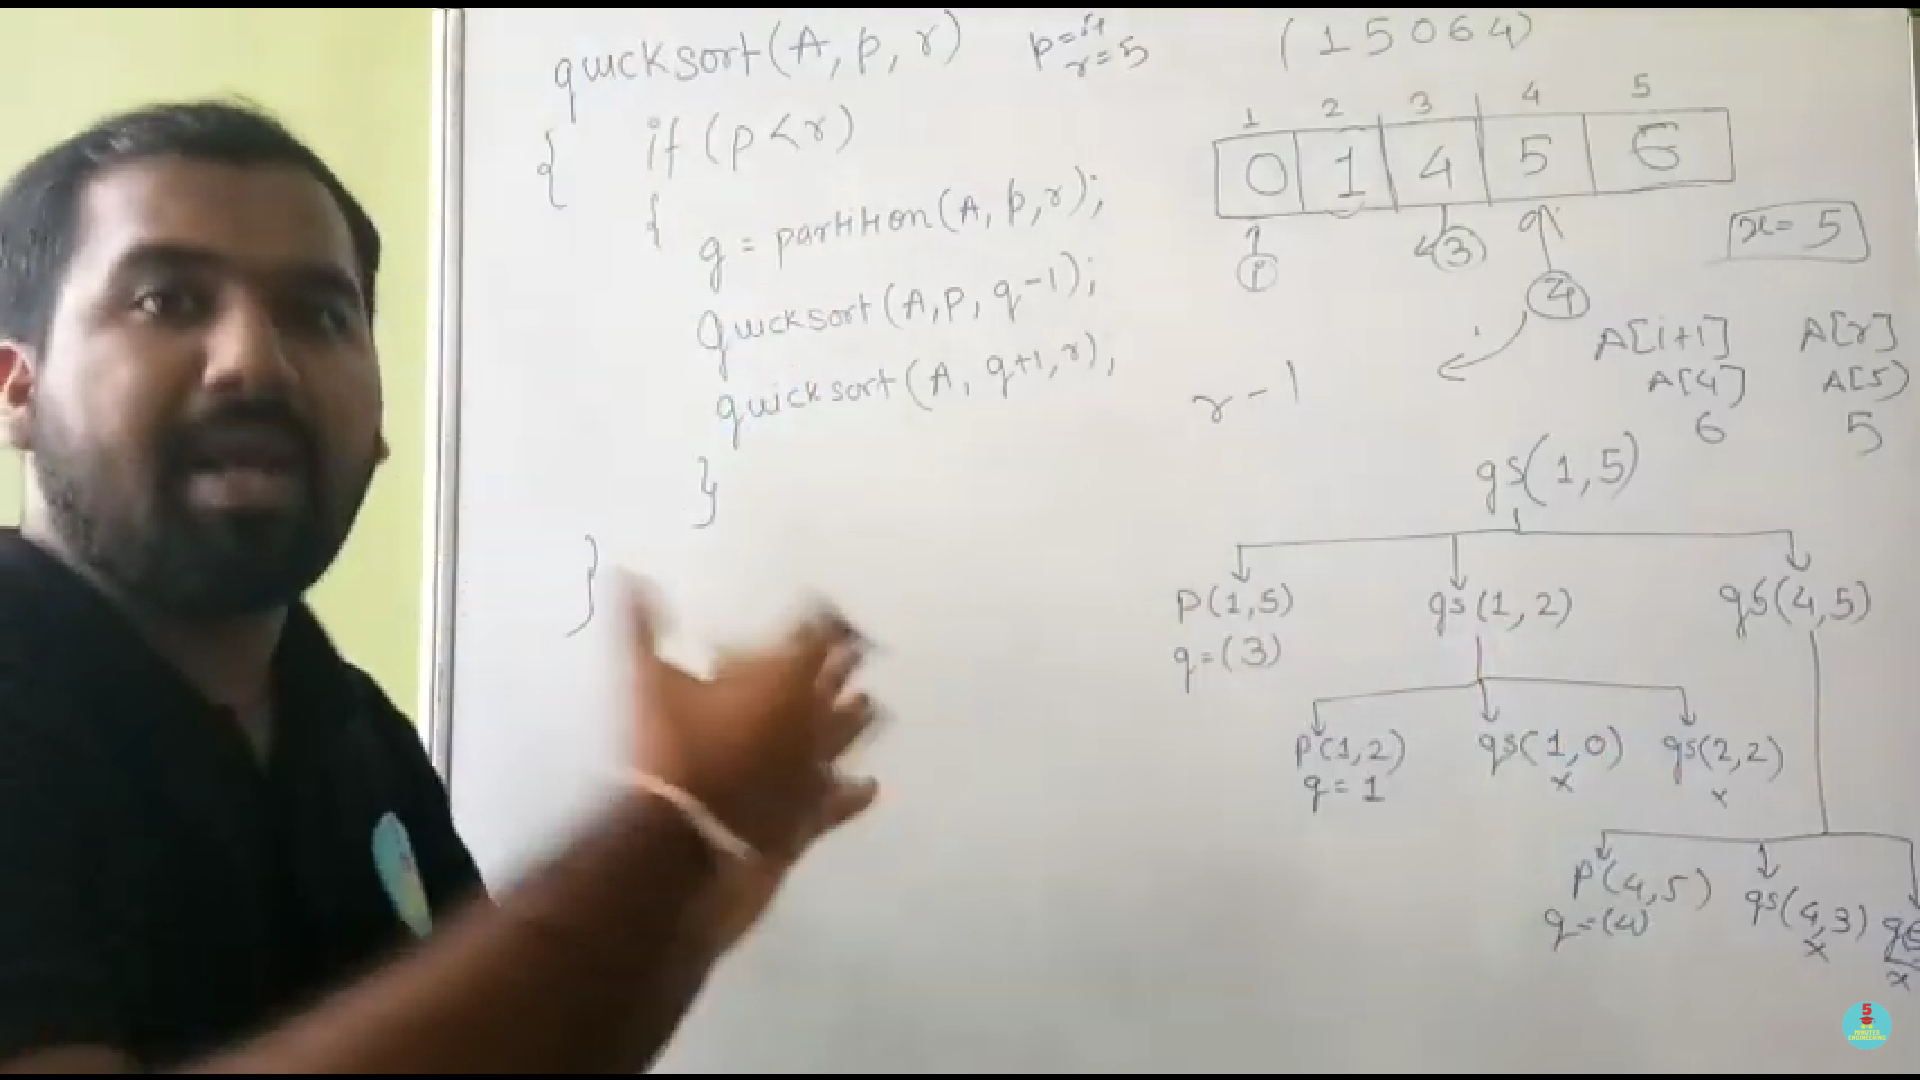 quicksort(A, p, r)
{ if (p < r)
{ q = partition(A, p, r);
Quicksort(A, p, q-1);
quicksort(A, q+1, r);
}
}
r=5
(15064)
1 2 3 4 5
0 1 4 5 6
x = 5
i
3
4
r-1
A[i+1] A[r]
A[4] A[5]
6 5
qs(1,5)
P(1,5) qs(1,2) qs(4,5)
q=(3)
P(1,2) qs(1,0) qs(2,2)
q=1 x x
P(4,5) qs(4,3)
q=(4) x x
5
MINUTES
ENGINEERING